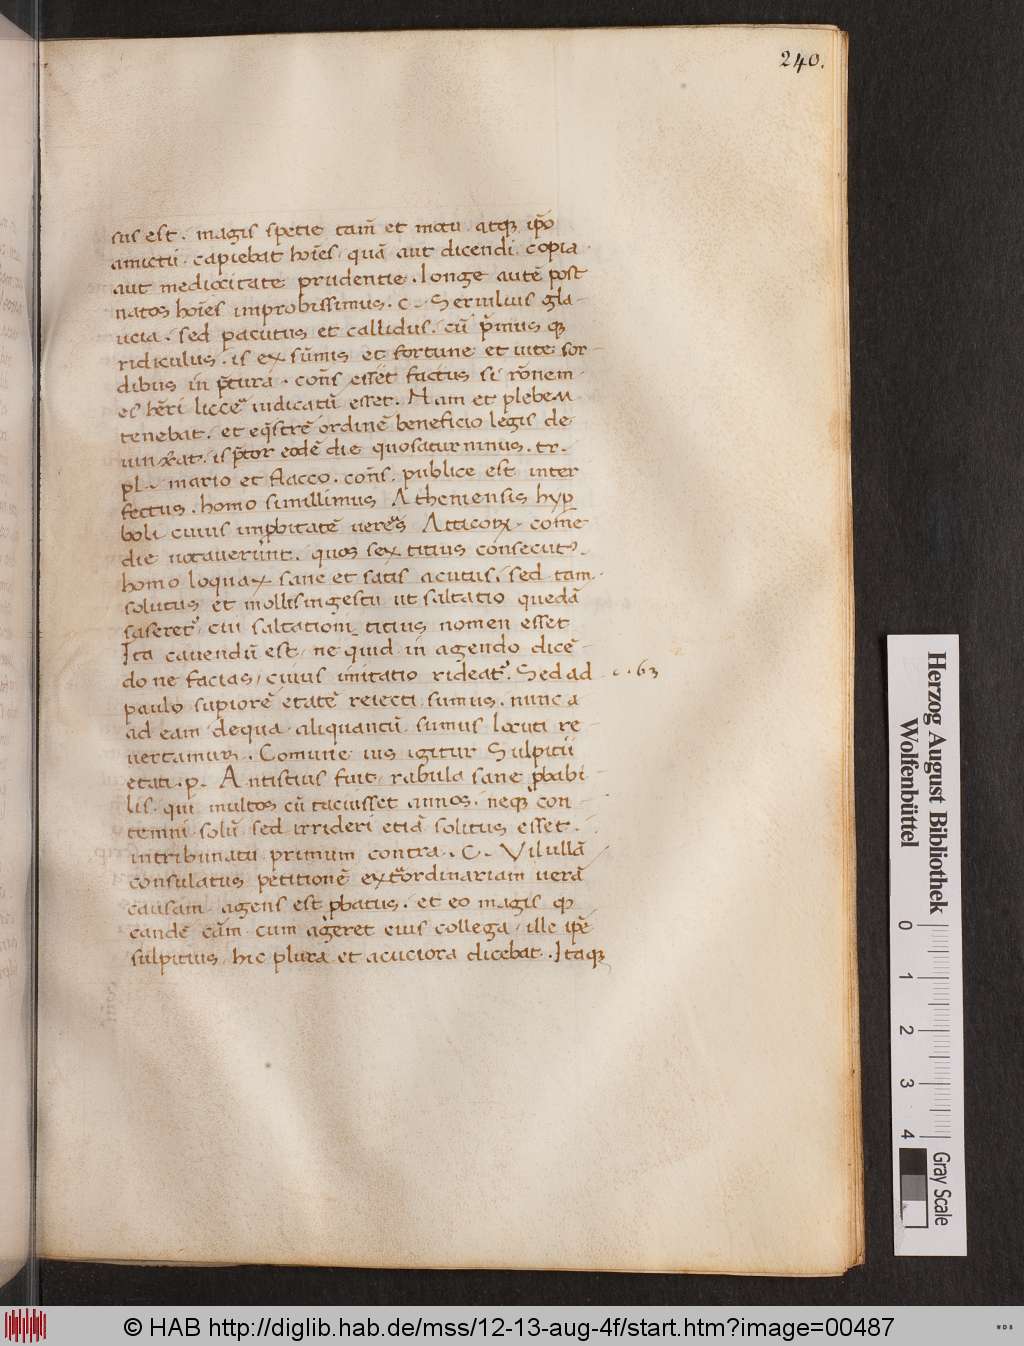 240.
sus est. magis spetie tam̃ et motu atq; ip̃o
amictu. capiebat hoĩes. quã aut dicendi copia
aut mediocitate prudentie. longe autẽ post
natos hoĩes improbissimus. C. Seruilius gla-
ucia. sed pacutus et callidus. cũ p̃mus q;
ridiculus. is ex sũmis et fortune et uite sor-
dibus in p̃tura. cõns esset factus si rõnem
es hr̃i liccẽ iudicatũ esset. Nam et plebem
tenebat. et eq̃strẽ ordinẽ beneficio legis de
uinxat. is p̃tor eodẽ die quosaturninus. tr.
pl. mario et flacco. cõns. publice est inter
fectus. homo simillimus Atheniensis hyp̱
boli cuius imp̱bitatẽ uereᷓs Atticoꝝ come
die notauerunt. quos sex titius consecut᾽.
homo loquax sane et satis acutus. sed tam
solutus et mollisingestu ut saltatio quedã
saseret᾽. cui saltationi titius nomen esset
Ita cauendũ est. ne quid in agendo dicẽ-
do ne facias, cuius imitatio rideat᾽. Sed ad
c. 63
paulo supiorẽ etatẽ reiecti sumus. nunc a
ad eam dequa aliquantũ sumus locuti re-
uertamur. Comune ius igitur Sulpitii
etati. p. Antistius fuit, rabula sane ꝓbabi-
lis. qui multos cũ tacuisset annos. neq; con
temni solũ sed irrideri etiã solitus esset.
intribunatu primum contra. C. Vilullã
consulatus petitionẽ extᷓordinariam uerã
causam agens est ꝓbatus. et eo magis ꝙ
eandẽ cãm cum ageret eius collega, ille ip̃e
sulpitius, hic plura et acuciora dicebat. Itaq;
Herzog August Bibliothek
Wolfenbüttel
0
1
2
3
4
Gray Scale
© HAB http://diglib.hab.de/mss/12-13-aug-4f/start.htm?image=00487